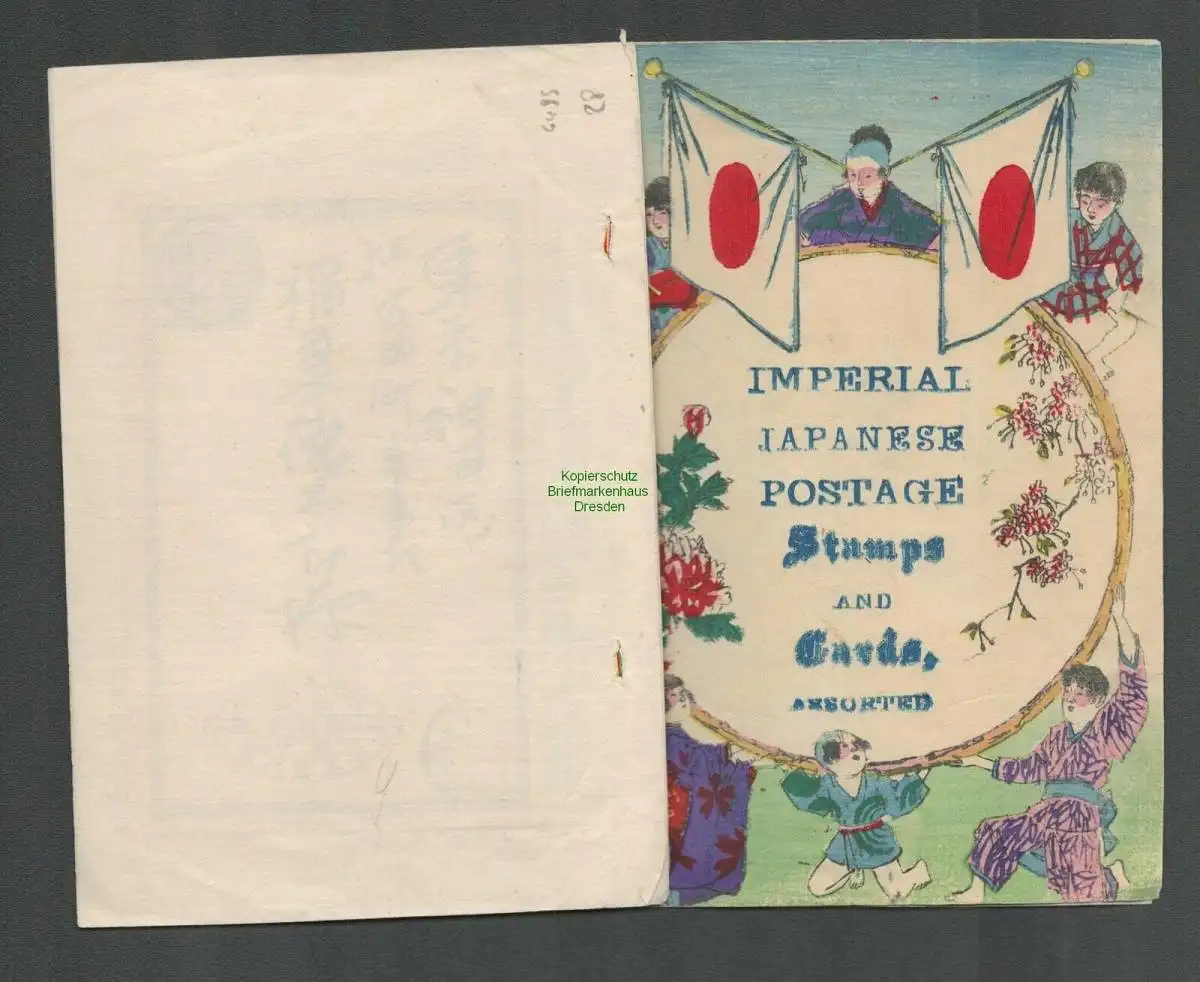 6495
28
IMPERIAL
JAPANESE
POSTAGE
Stamps
AND
Cards,
ASSORTED
Kopierschutz
Briefmarkenhaus
Dresden